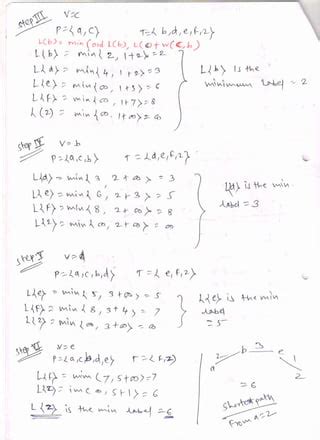 step III V=c
P={a,c} T={b,d,e,f,z}
L(b) = min{old L(b), L(c)+w(c,b)
L{b} = min{2, 1+2}=2
L{d} = min{4, 1+2=3
L{e} = min{∞, 1+5} = 6
L{f} = min{∞, 1+7}=8
L(z) = min{∞, 1+∞}=∞
L{b} is the
minimum label = 2
step IV V=b
P={a,c,b} T={d,e,f,z}
L{d} = min{3 2+∞} = 3
L{e} = min{6, 2+3} = 5
L{f} = min{8, 2+∞} = 8
L{z} = min{∞, 2+∞} = ∞
L{d} is the min
label = 3
step V V=d
P={a,c,b,d} T={e,f,z}
L{e} = min{5, 3+∞} = 5
L{f} = min{8, 3+4} = 7
L{z} = min{∞, 3+∞} = ∞
L{e} is the min
label
=5
step VI V=e
P={a,c,b,d,e} T={f,z}
L{f} = min{7, 5+∞}=7
L{z} = {∞, 5+1} = 6
L{z} is the min label = 6
a 2 b 3 e 1 z
=6
Shortest path
from a=z